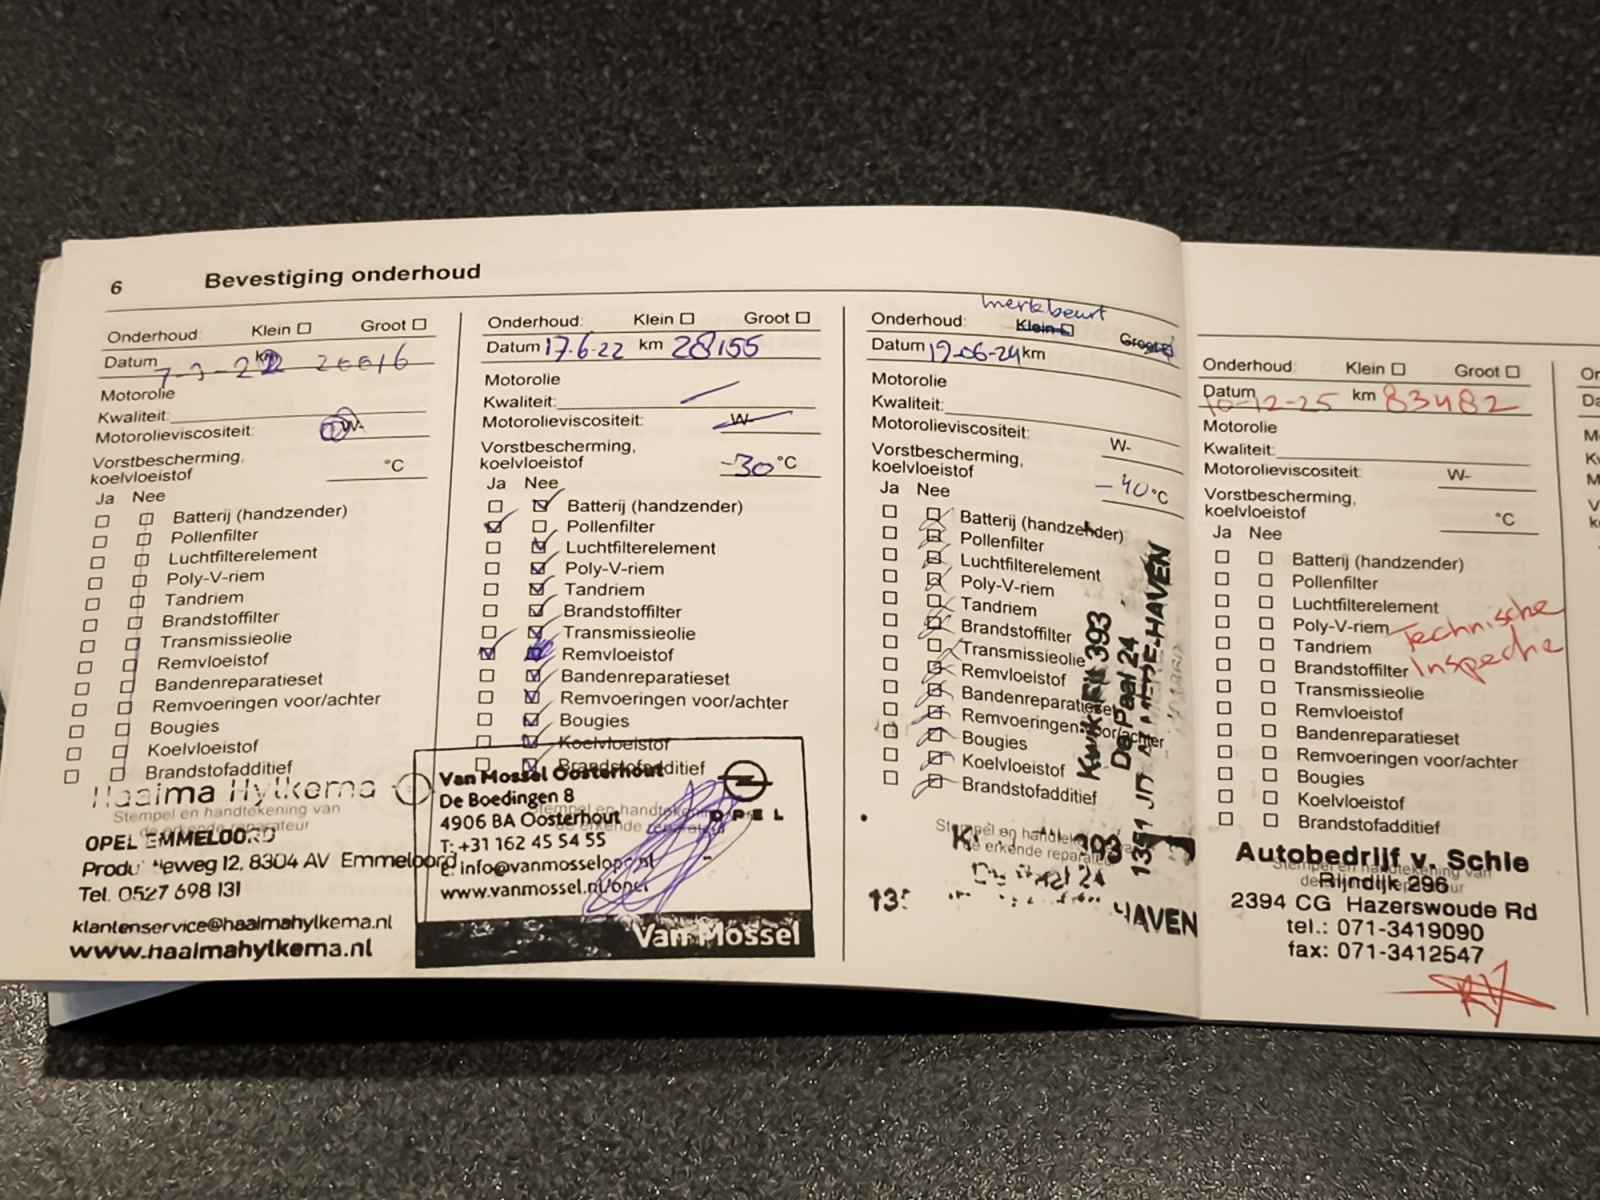 6 Bevestiging onderhoud
Onderhoud: Klein Groot
Datum 7-3-22 km
Motorolie
Kwaliteit:
Motorolieviscositeit: W-
Vorstbescherming,
koelvloeistof °C
Ja Nee
Batterij (handzender)
Pollenfilter
Luchtfilterelement
Poly-V-riem
Tandriem
Brandstoffilter
Transmissieolie
Remvloeistof
Bandenreparatieset
Remvoeringen voor/achter
Bougies
Koelvloeistof
Brandstofadditief
Haaima Hylkema
Stempel en handtekening van
de erkende reparateur
OPEL EMMELOORD
Produ weg 12, 8304 AV Emmeloord
Tel. 0527 698 131
klantenservice@haaimahylkema.nl
www.haaimahylkema.nl
Onderhoud: Klein Groot
Datum 17-6-22 km 28155
Motorolie
Kwaliteit:
Motorolieviscositeit: W-
Vorstbescherming,
koelvloeistof -30 °C
Ja Nee
Batterij (handzender)
Pollenfilter
Luchtfilterelement
Poly-V-riem
Tandriem
Brandstoffilter
Transmissieolie
Remvloeistof
Bandenreparatieset
Remvoeringen voor/achter
Bougies
Koelvloeistof
Brandstofadditief
Van Mossel Oosterhout
De Boedingen 8
Stempel en handtekening
4906 BA Oosterhout
de erkende reparateur
OPEL
T: +31 162 45 54 55
E: info@vanmosselopel.nl
www.vanmossel.nl/opel
Van Mossel
merkbeurt
Onderhoud: Klein Groot
Datum 19-06-24 km
Motorolie
Kwaliteit:
Motorolieviscositeit: W-
Vorstbescherming,
koelvloeistof -40 °C
Ja Nee
Batterij (handzender)
Pollenfilter
Luchtfilterelement
Poly-V-riem
Tandriem
Brandstoffilter
Transmissieolie
Remvloeistof
Bandenreparatieset
Remvoeringen voor/achter
Bougies
Koelvloeistof
Brandstofadditief
Kwik Fit 393
De Paal 24
1351 JD HAVEN
Stempel en handtekening van
de erkende reparateur
393
24
HAVEN
Onderhoud: Klein Groot
Datum 10-12-25 km 83482
Motorolie
Kwaliteit:
Motorolieviscositeit: W-
Vorstbescherming,
koelvloeistof °C
Ja Nee
Batterij (handzender)
Pollenfilter
Luchtfilterelement
Poly-V-riem
Tandriem
Brandstoffilter
Transmissieolie
Remvloeistof
Bandenreparatieset
Remvoeringen voor/achter
Bougies
Koelvloeistof
Brandstofadditief
Technische
Inspectie
Autobedrijf v. Schie
Stempel en handtekening van
de erkende reparateur
Rijndijk 296
2394 CG Hazerswoude Rd
tel.: 071-3419090
fax: 071-3412547